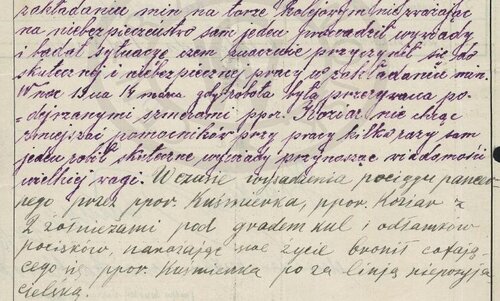 zakładaniu min na torze kolejowym nie zważając
na niebezpieczeństwo sam jeden prowadził wywiady
i badał sytuację czem znacznie przyczynił się do
skutecznej i niebezpiecznej pracy w zakładaniu min.
W noc 13 na 14 marca gdy robota była przerywana po-
dejrzanymi szmerami ppr. Koziar nie chcąc
zmniejszać pomocników przy pracy kilka razy sam
jeden robił skuteczne wywiady przynosząc wiadomości
wielkiej wagi. W czasie wysadzenia pociągu pancer
nego przez ppor. Kuśmierka, ppor. Koziar z
2 żołnierzami pod gradem kul i odłamków
pocisków, narażając swe życie bronił cofają
cego się ppor. Kuśmierka poza linją nieprzyja
cielską.